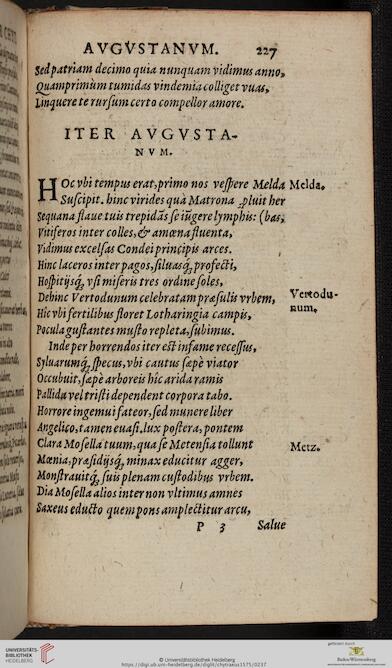 AVGVSTANVM. 227
Sed patriam decimo quia nunquam vidimus anno,
Quamprimùm tumidas vindemia colliget vuas,
Linquere te rursum certo compellor amore.
ITER AVGVSTA-
NVM.
HOc vbi tempus erat, primo nos vespere Melda Melda.
Suscipit. hinc virides quà Matrona ꝓluit her
Sequana flaue tuis trepidãs se iũgere lymphis: (bas,
Vitiferos inter colles, & amœna fluenta,
Vidimus excelsas Condei principis arces.
Hinc laceros inter pagos, siluasq́; profecti,
Hospitijsq́;, vsi miseris tres ordine soles,
Dehinc Vertodunum celebratam præsulis vrbem, Vertodu-
Hic vbi fertilibus floret Lotharingia campis, num.
Pocula gustantes musto repleta, subimus.
Inde per horrendos iter est infame recessus,
Syluarumq́; specus, vbi cautus sæpè viator
Occubuit, sæpè arboreis hîc arida ramis
Pallida vel tristi dependent corpora tabo.
Horrore ingemui fateor, sed munere liber
Angelico, tamen euasi. lux postera, pontem
Clara Mosella tuum, qua se Metensia tollunt Metz.
Mœnia, præsidijsq́; minax educitur agger,
Monstrauitq́; suis plenam custodibus vrbem.
Dia Mosella alios inter non vltimus amnes
Saxeus educto quem pons amplectitur arcu,
P 3 Salue
gefördert durch
UNIVERSITÄTS-
BIBLIOTHEK
HEIDELBERG
© Universitätsbibliothek Heidelberg
https://digi.ub.uni-heidelberg.de/diglit/chytraeus1575/0237
Baden-Württemberg